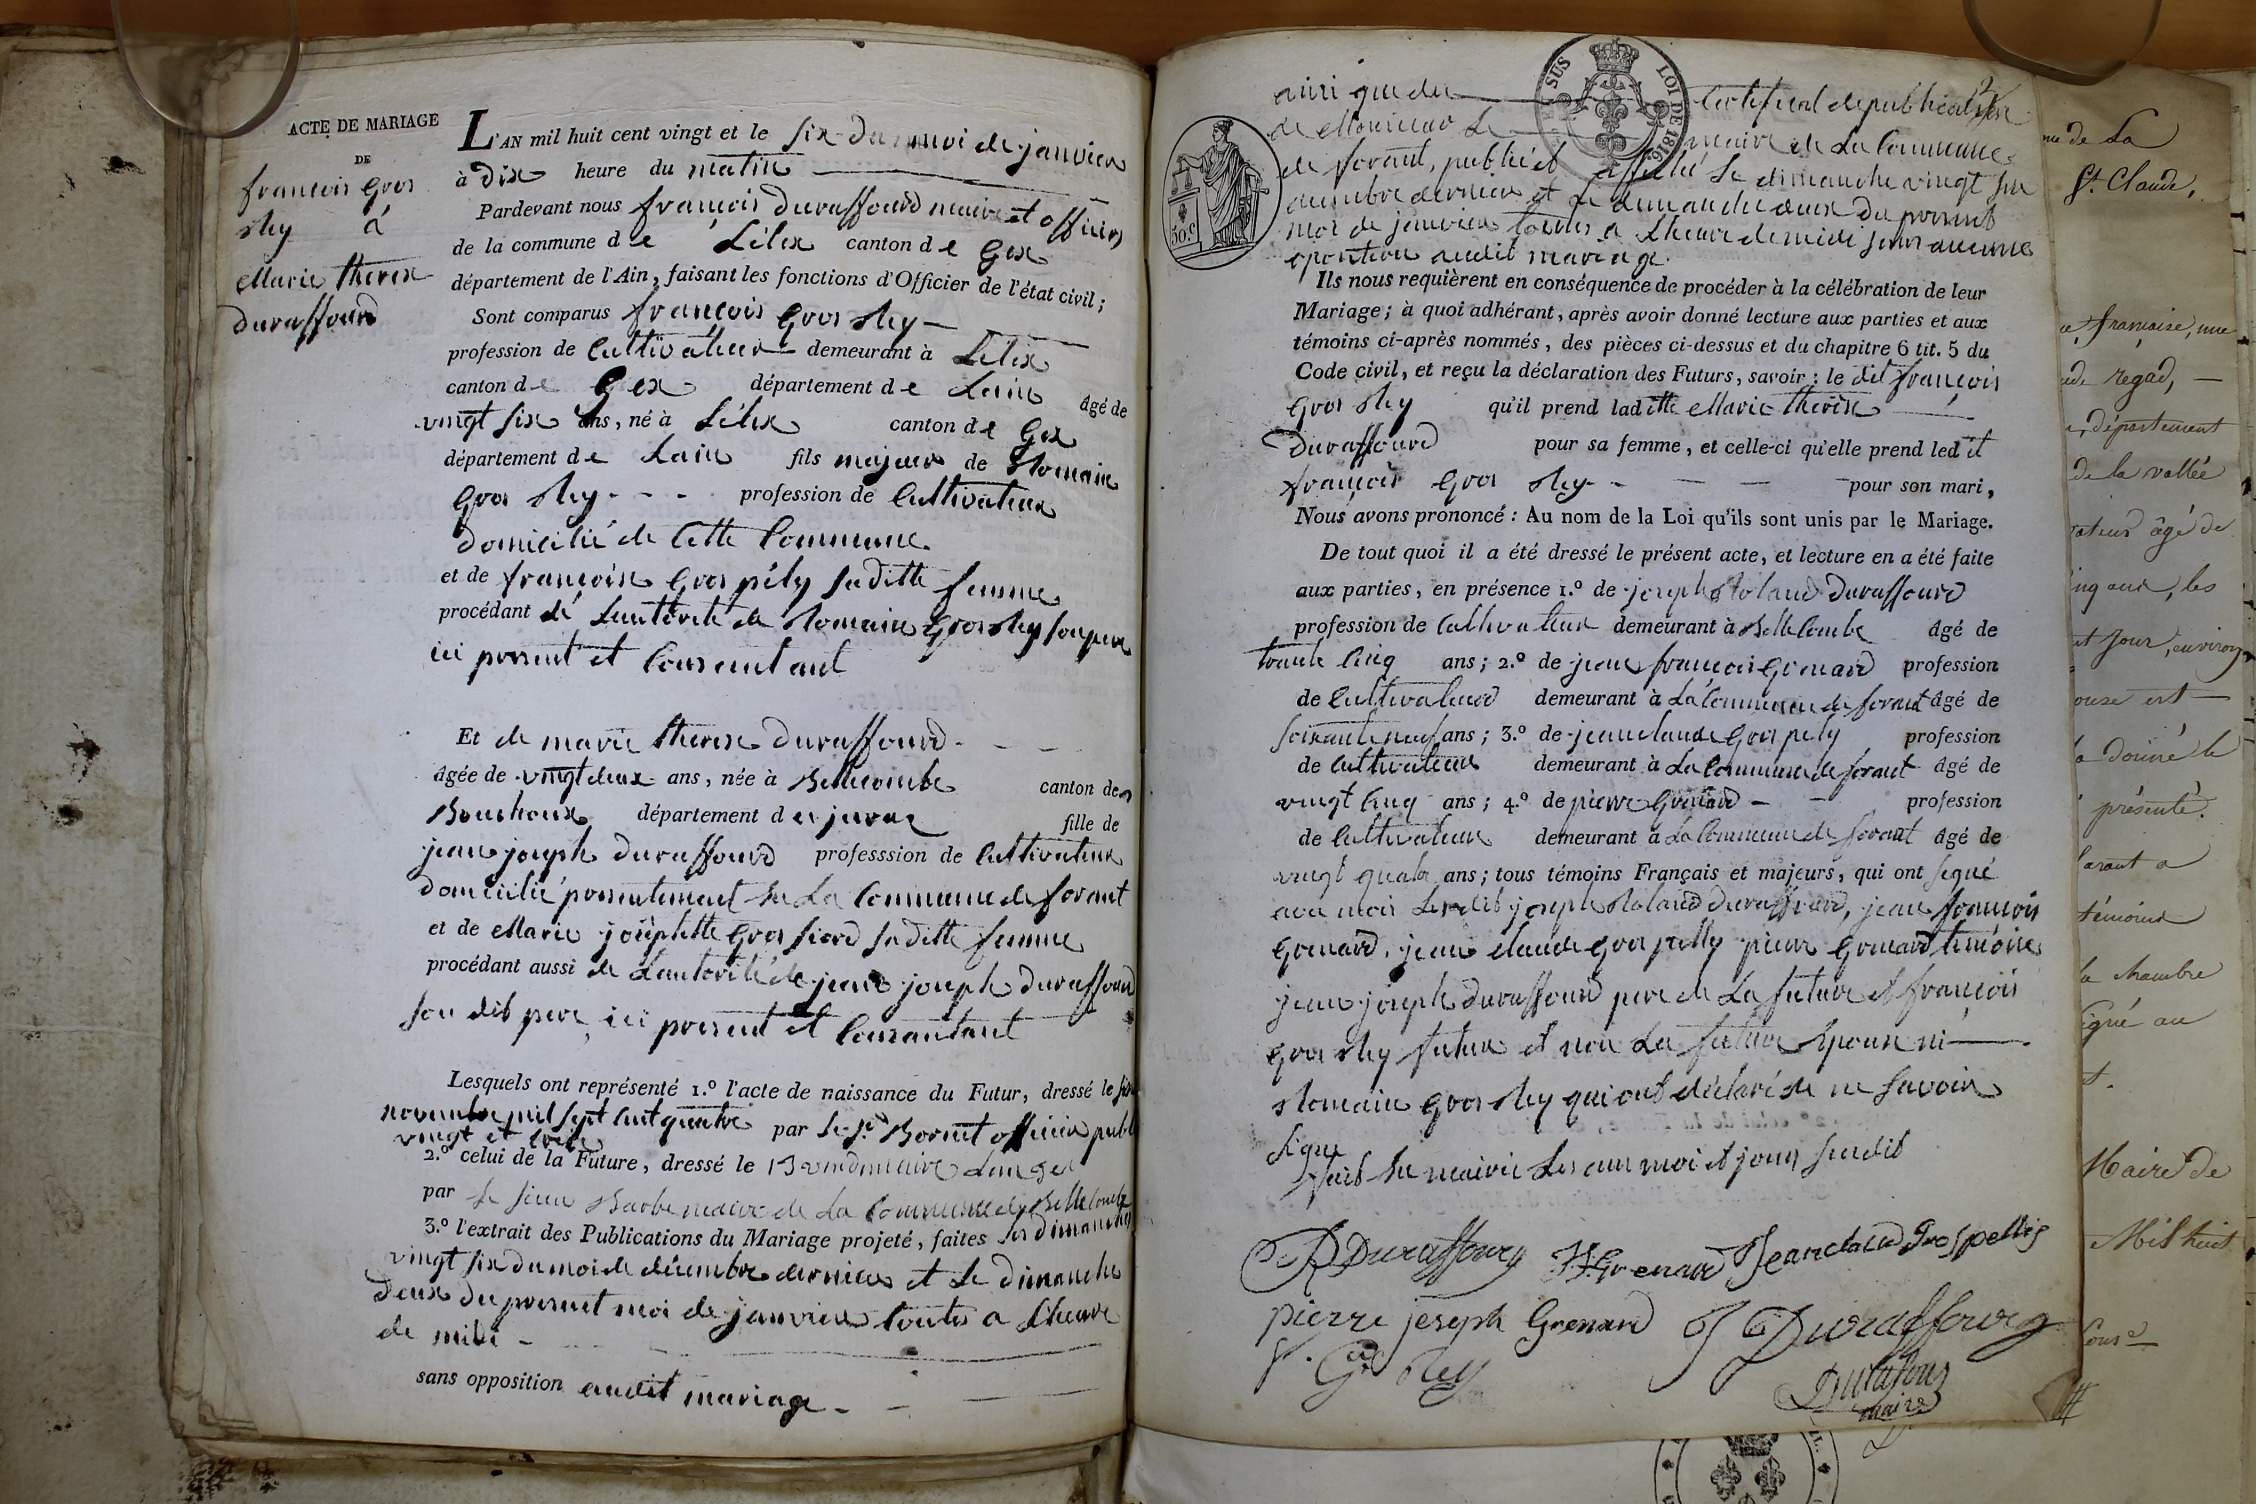 ACTE DE MARIAGE
DE
françois Gros
Rey à
Marie therese
Duraffourd
L'AN mil huit cent vingt et le six du moi de janvier
à Dix heure du matin
Pardevant nous françois Duraffourd maire et officier
de la commune de Lélex canton de Gex
département de l'Ain, faisant les fonctions d'Officier de l'état civil;
Sont comparus françois Gros Rey
profession de Cultivateur demeurant à Lélex
canton de Gex département de Lain âgé de
vingt six ans, né à Lélex canton de Gex
département de Lain fils majeur de Romain
Gros Rey - - - profession de Cultivateur
domicilié de Cette Commune
et de françoise Gros pély sa ditte femme
procédant de Lautorité de Romain Gros Rey son pere
ici present et Consentant
Et de marie therese Duraffourd
âgée de vingt deux ans, née à Bellecombe canton des
Bouchoux département du jura fille de
jean joseph Duraffourd professsion de Cultivateur
domicilié presentement sur La Commune de forant
et de Marie josephette Gros fiord sa ditte femme
procédant aussi de Lautorité de jean joseph Duraffourd
son dit pere ici present et Consantant
Lesquels ont représenté 1.º l'acte de naissance du Futur, dressé le six
novembre mil sept cent quatre
vingt et treize par le Sr Bornet officier publ
2.º celui de la Future, dressé le 13 vendemiaire Lan
par le sieur Barbe maire de La Commune de Bellecombe
3.º l'extrait des Publications du Mariage projeté, faites les dimanches
vingt six du moi de décembre dernier et Le Dimanche
Deux du present moi de janvier toutes a Lheure
de midi -
sans opposition audit mariage - -
ainsi que du Certificat de publication
de Monsieur Le maire de La Commune
de forant, publié et affiché Le dimanche vingt six
decembre dernier et Le dimanche deux du present
moi de janvier toutes a Lheure de midi sans aucune
opposition audit mariage.
SUS
LOI DE 1816
50.c
Ils nous requièrent en conséquence de procéder à la célébration de leur
Mariage; à quoi adhérant, après avoir donné lecture aux parties et aux
témoins ci-après nommés, des pièces ci-dessus et du chapitre 6 tit. 5 du
Code civil, et reçu la déclaration des Futurs, savoir: le dit françois
Gros Rey qu'il prend laditte Marie therese
Duraffourd pour sa femme, et celle-ci qu'elle prend ledit
françois Gros Rey - - - - pour son mari,
Nous avons prononcé: Au nom de la Loi qu'ils sont unis par le Mariage.
De tout quoi il a été dressé le présent acte, et lecture en a été faite
aux parties, en présence 1.º de joseph Roland Duraffourd
profession de Cultivateur demeurant à Belle Combe âgé de
trante Cinq ans; 2.º de jean françois Grenard profession
de Cultivateur demeurant à La Commune de forant âgé de
soixante neuf ans; 3.º de jean claude Gros pely profession
de Cultivateur demeurant à La Commune de forant âgé de
vingt Cinq ans; 4.º de pierre Grenard - - profession
de Cultivateur demeurant à La Commune de forant âgé de
vingt quatre ans; tous témoins Français et majeurs, qui ont signé
avec moi Lesdits joseph Roland Duraffourd, jean françois
Grenard, jean claude Gros pelly pierre Grenard témoins
jean joseph Duraffourd pere de La future et françois
Gros Rey future et non La future Epouse ni
Romain Gros Rey qui ont déclaré de ne Savoir
signe
fait en mairie Les an moi et jour susdit
JR Duraffourg J.f. Grenard Jean claud Grospellis
pierre joseph Grenard J J Duraffourg
f. Gr Rey
Durafour
maire
de La
St. Claude,
française, une
regad, —
département
de la vallée
âgé de
ans, les
jour, environ
est —
a donné le
présenté.
témoins
la chambre
signé au
Maire de
Mil huit